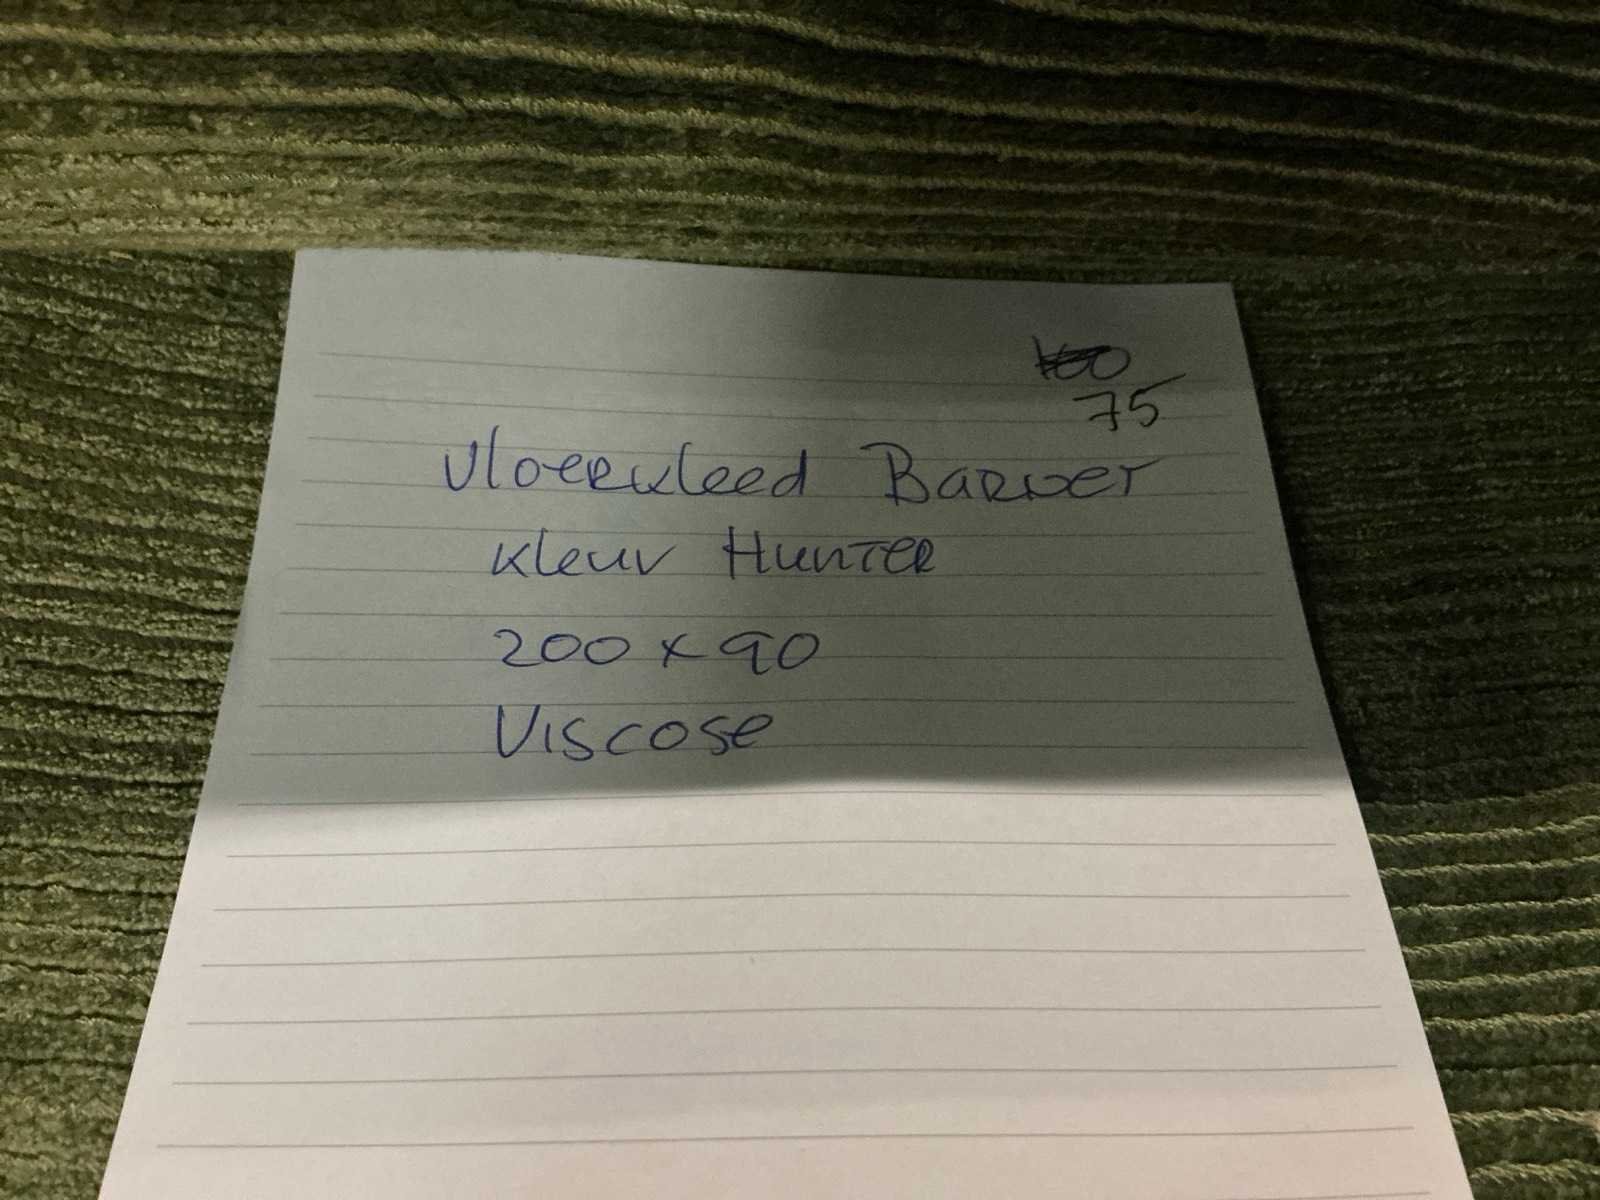 100
75
Vloerkleed Barver
Kleur Hunter
200 x 90
Viscose